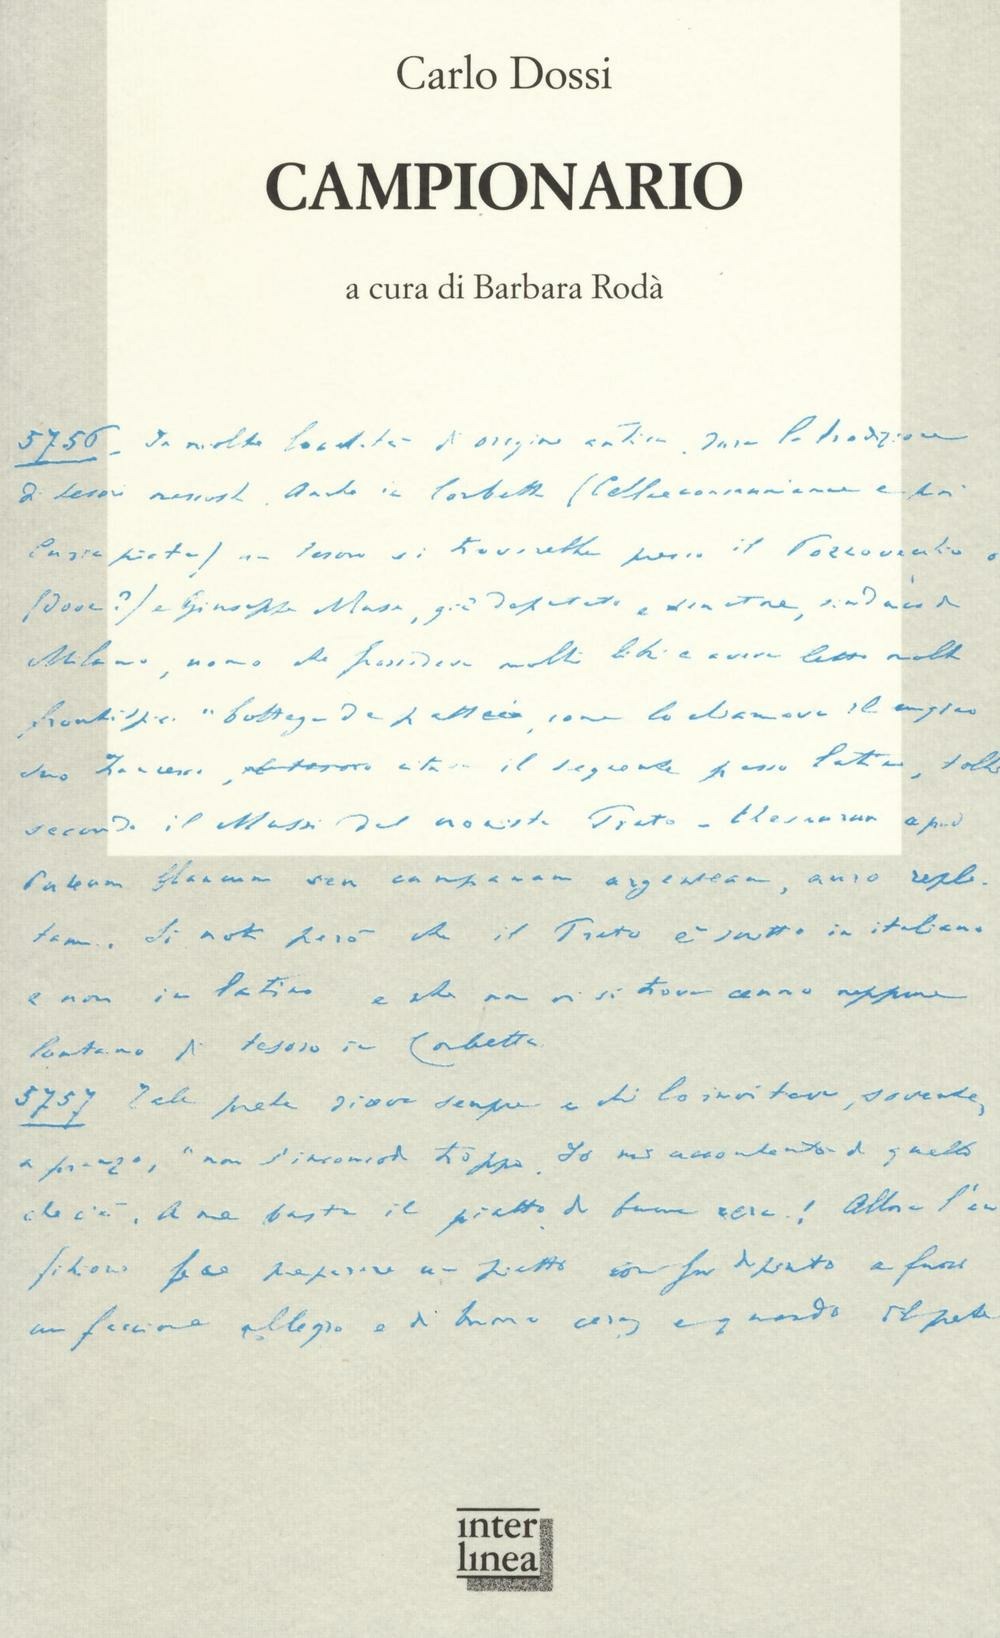 Carlo Dossi
CAMPIONARIO
a cura di Barbara Rodà
5756. In molte località di origine antica dura la tradizione
di tesori nascosti. Anche in Corbetta (
picta) un tesoro si troverebbe presso il
(dove?) e Giuseppe Mussi, già deputato e senatore, sindaco di
Milano, uomo che possedeva molti libri e aveva letto molti
frontispizi "bottega da, come lo chiamava il
suo, citava il seguente passo latino,
secondo il Mussi dal cronista Prato - thesaurum apud
seu campanam argenteam, auro reple-
tam. Si noti però che il Prato è scritto in italiano
e non in latino e che non vi si trova cenno neppure
lontano di tesoro in Corbetta.
5757 Tale prete diceva sempre a chi lo invitava, sovente,
a pranzo, "non s'incomodi troppo. Io mi accontento di quello
che c'è. A me basta il piatto di buona cera! Allora l'an
fece preparare un piatto con su dipinto a
un faccione allegro e di buona cera, e quando il prete
inter
linea